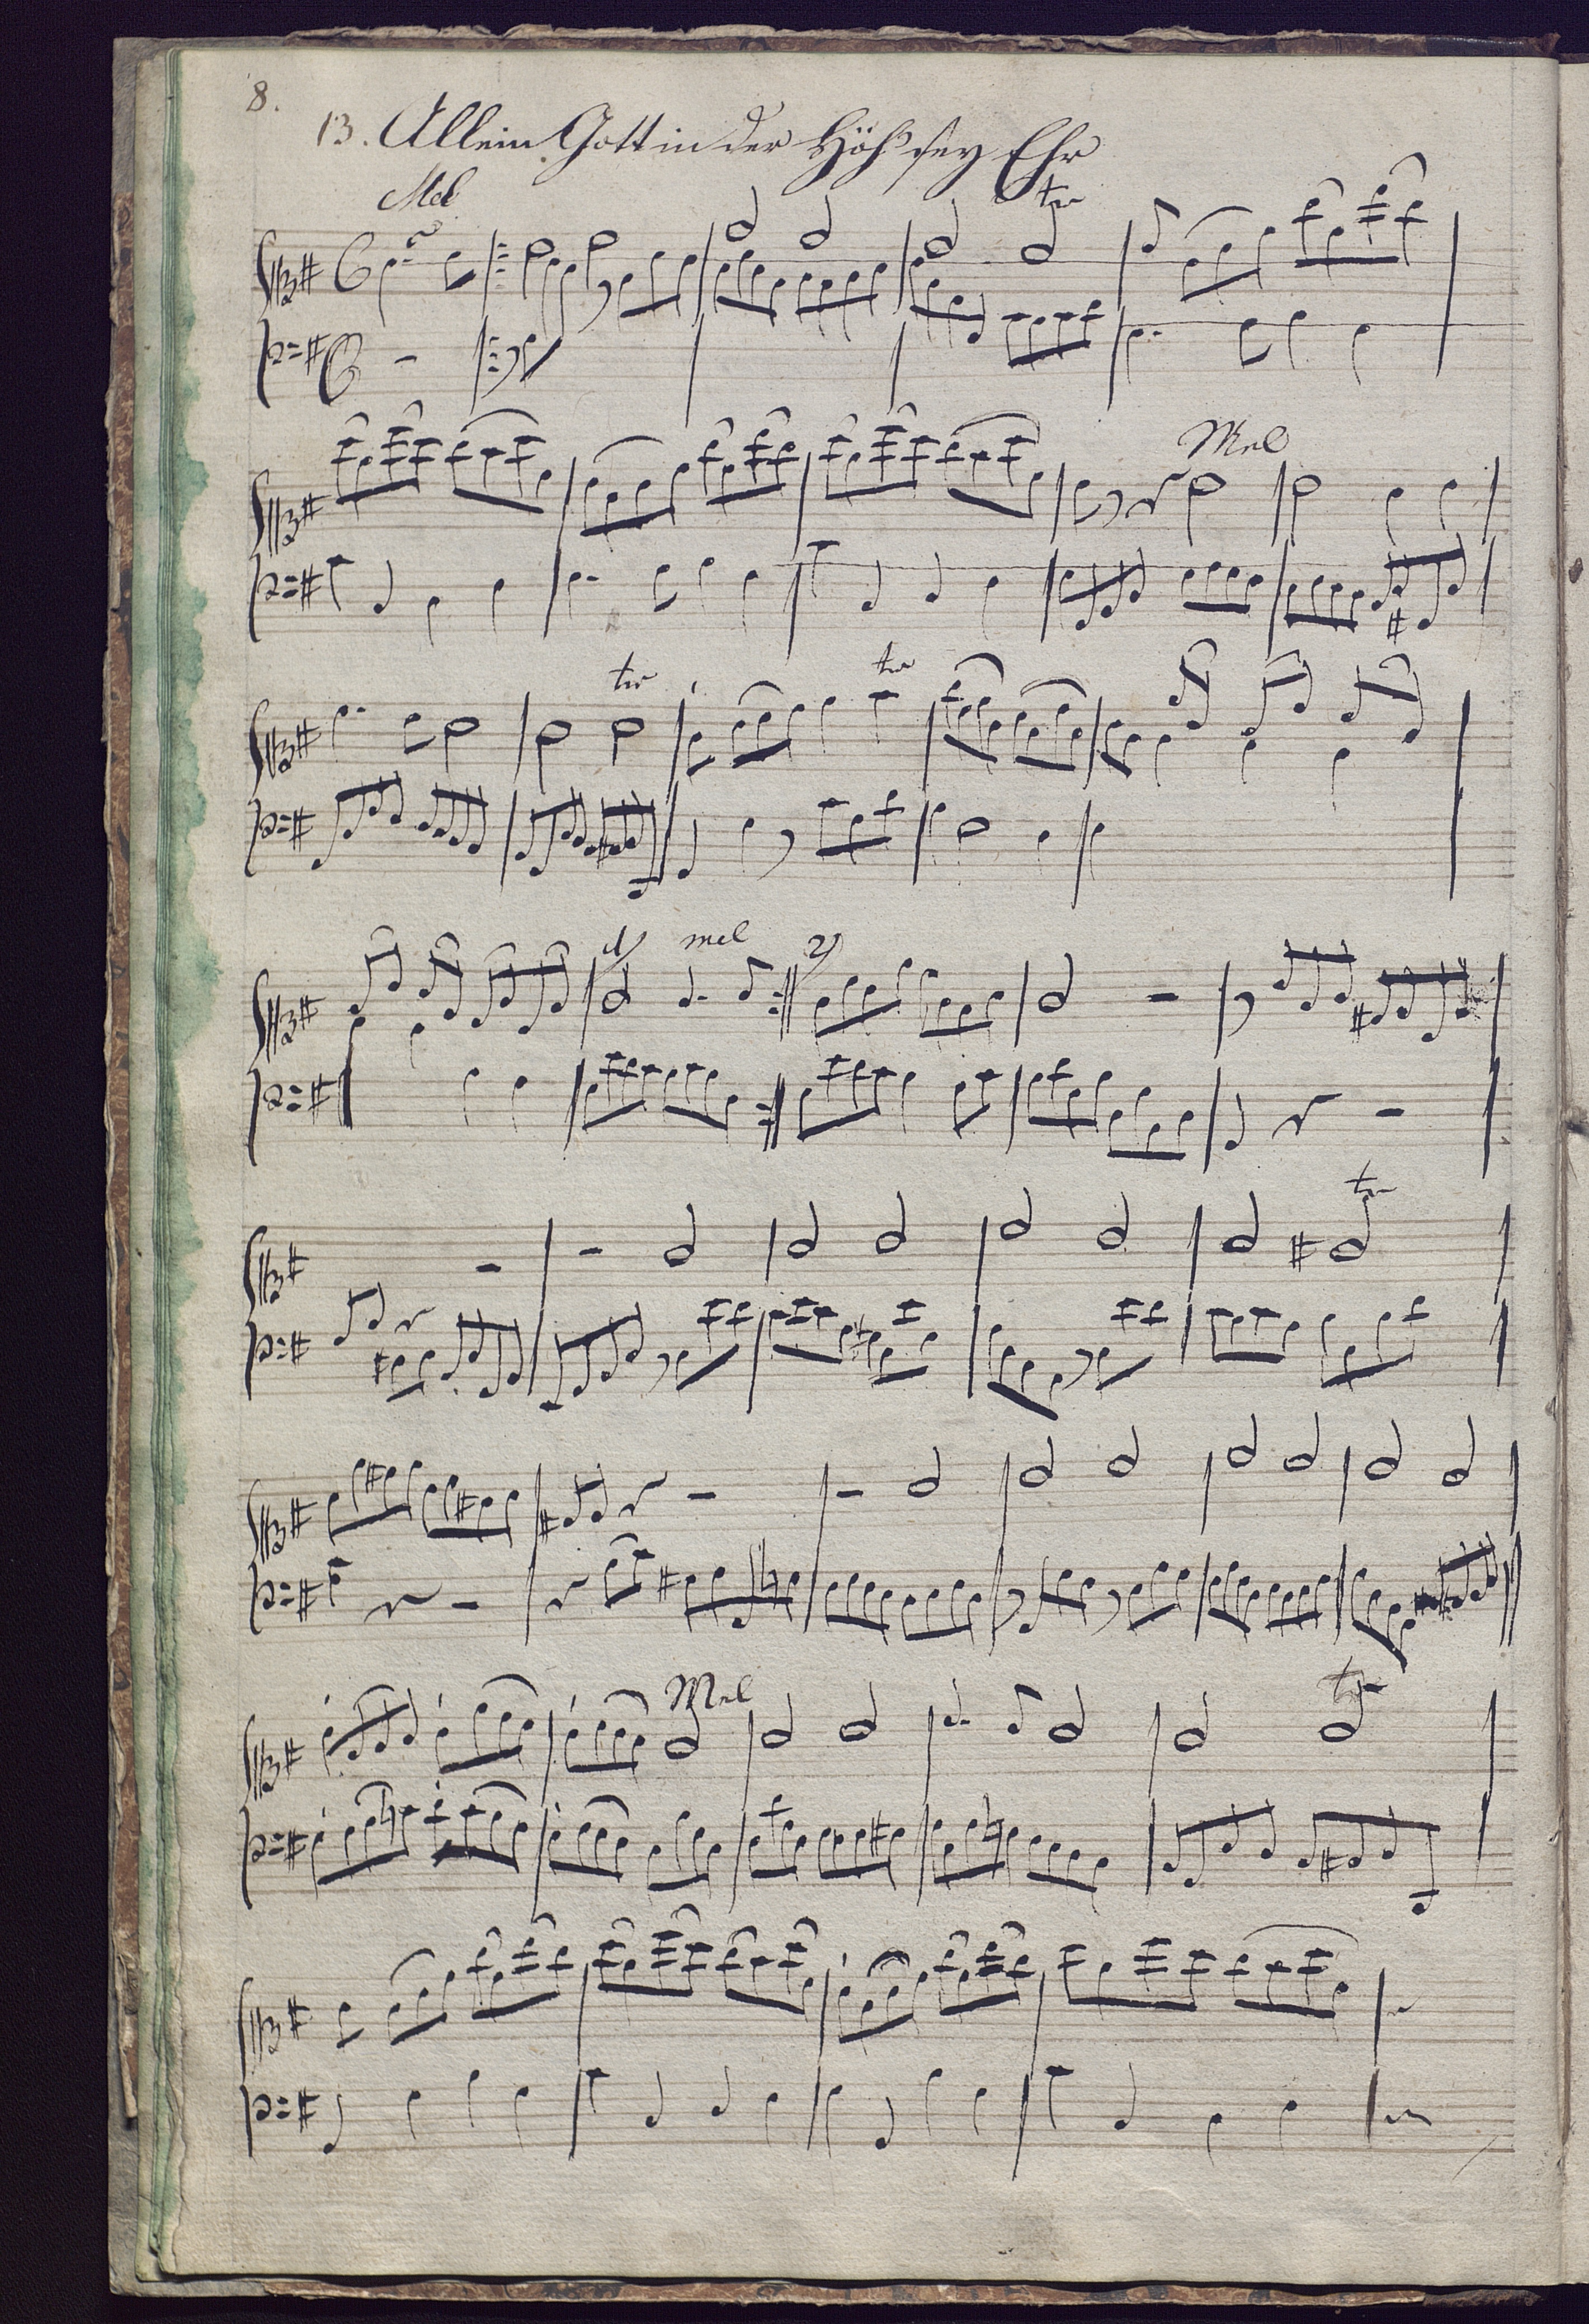 8.
13. Allein Gott in der Höh' sey Ehr
Mel
tr
Mel
tr tr
1) mel 2)
tr
Mel tr